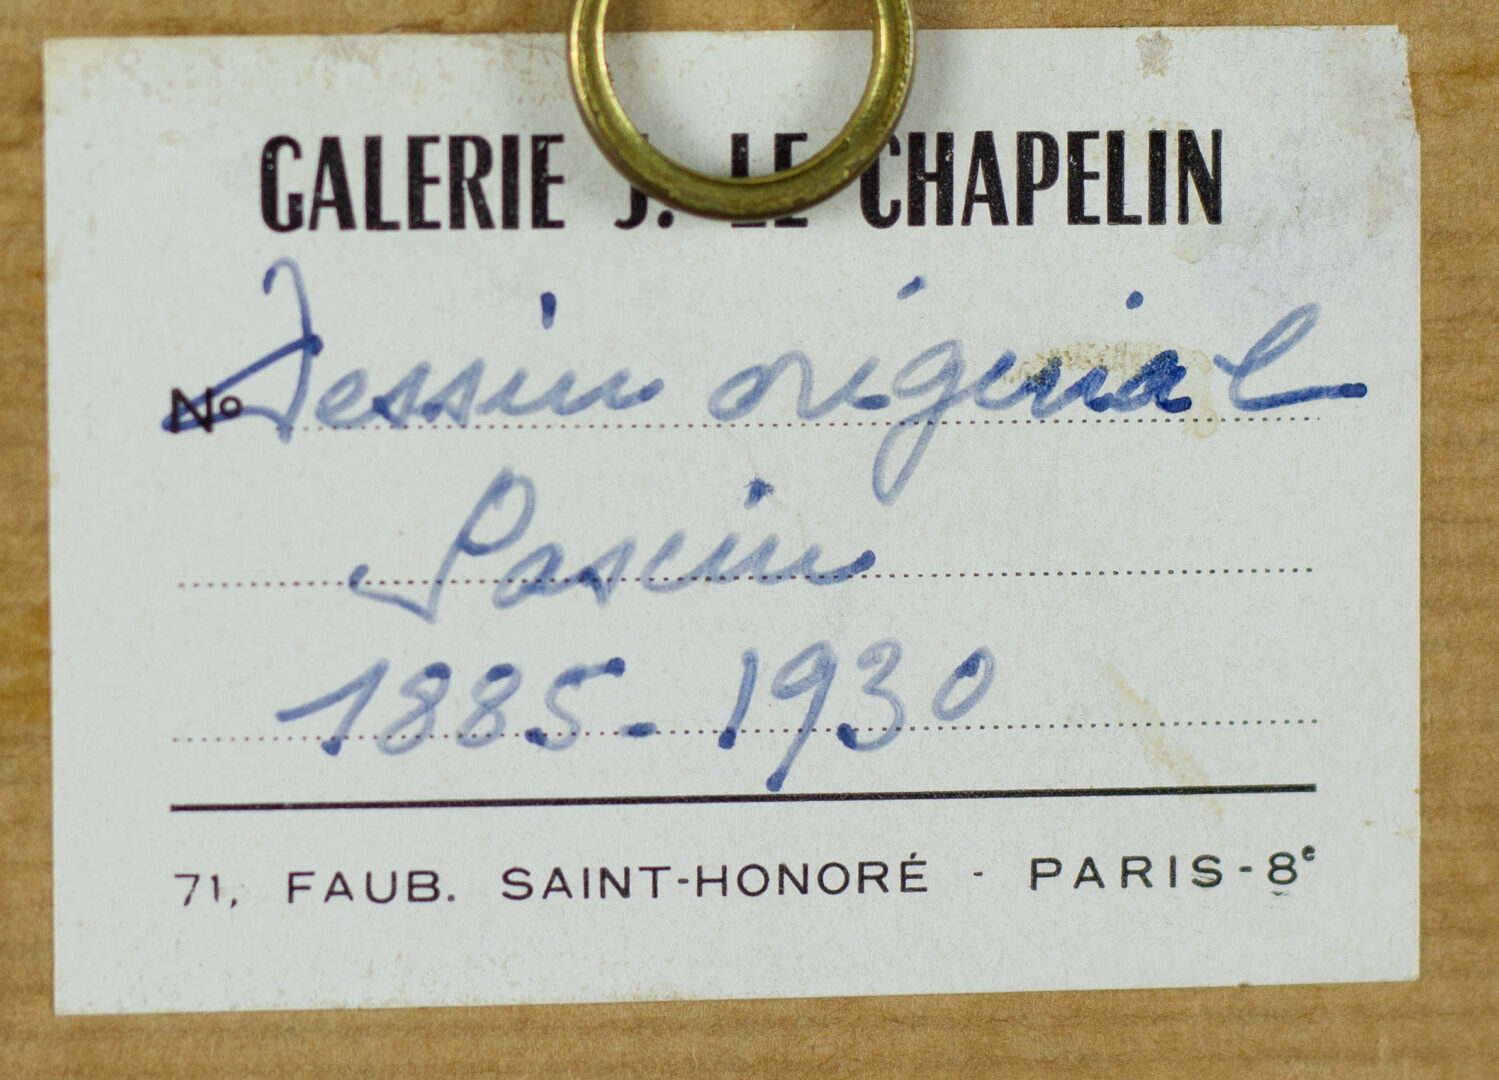 GALERIE J. LE CHAPELIN
Nº Dessin original
Pascin
1885-1930
71, FAUB. SAINT-HONORÉ - PARIS-8e